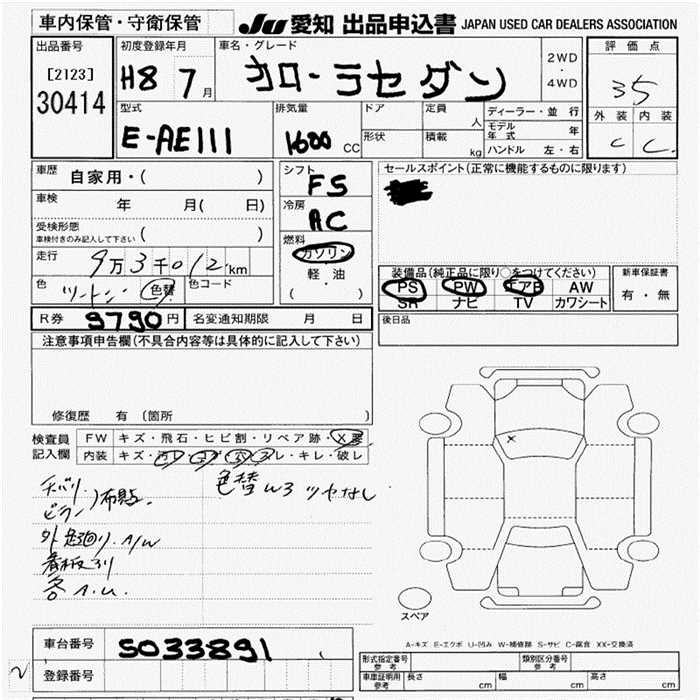 車内保管・守衛保管
JU 愛知 出品申込書 JAPAN USED CAR DEALERS ASSOCIATION
出品番号 初度登録年月 車名・グレード 評価点
[2123] 30414 H8 7月 カローラセダン 2WD ・ 4WD 35
外装 内装
C C
型式 排気量 ドア 定員 人 ディーラー・並行
E-AE111 1600 CC 形状 積載 kg モデル年式 年
ハンドル 左・右
車歴 自家用・( ) シフト FS セールスポイント(正常に機能するものに限ります)
車検 年 月( 日) 冷房 AC
受検形態 ( )
車検付きのみ記入して下さい
燃料 ガソリン
軽・油
( ・ )
走行 9万3千012km
色 ツートン・色替 色コード
装備品(純正品に限り○をつけてください) 新車保証書
PS PW エアB AW 有・無
SR ナビ TV カワシート
R券 9790円 名変通知期限 月 日 後日品
注意事項申告欄(不具合内容等は具体的に記入して下さい)
修復歴 有(箇所
検査員 FW キズ・飛石・ヒビ割・リペア跡・X要
記入欄 内装 キズ・汚レ・コゲ・穴・スレ・キレ・破レ
色替 W3 ツヤなし
外廻り A/W
看板
各 A.U.
スペア
A-キズ E-エクボ U-凹み W-補修跡 S-サビ C-腐食 XX-交換済
車台番号 5033891 形式指定番号 参考 類別区分番号 参考
登録番号 車庫証明用 参考 長さ cm 幅 cm 高さ cm